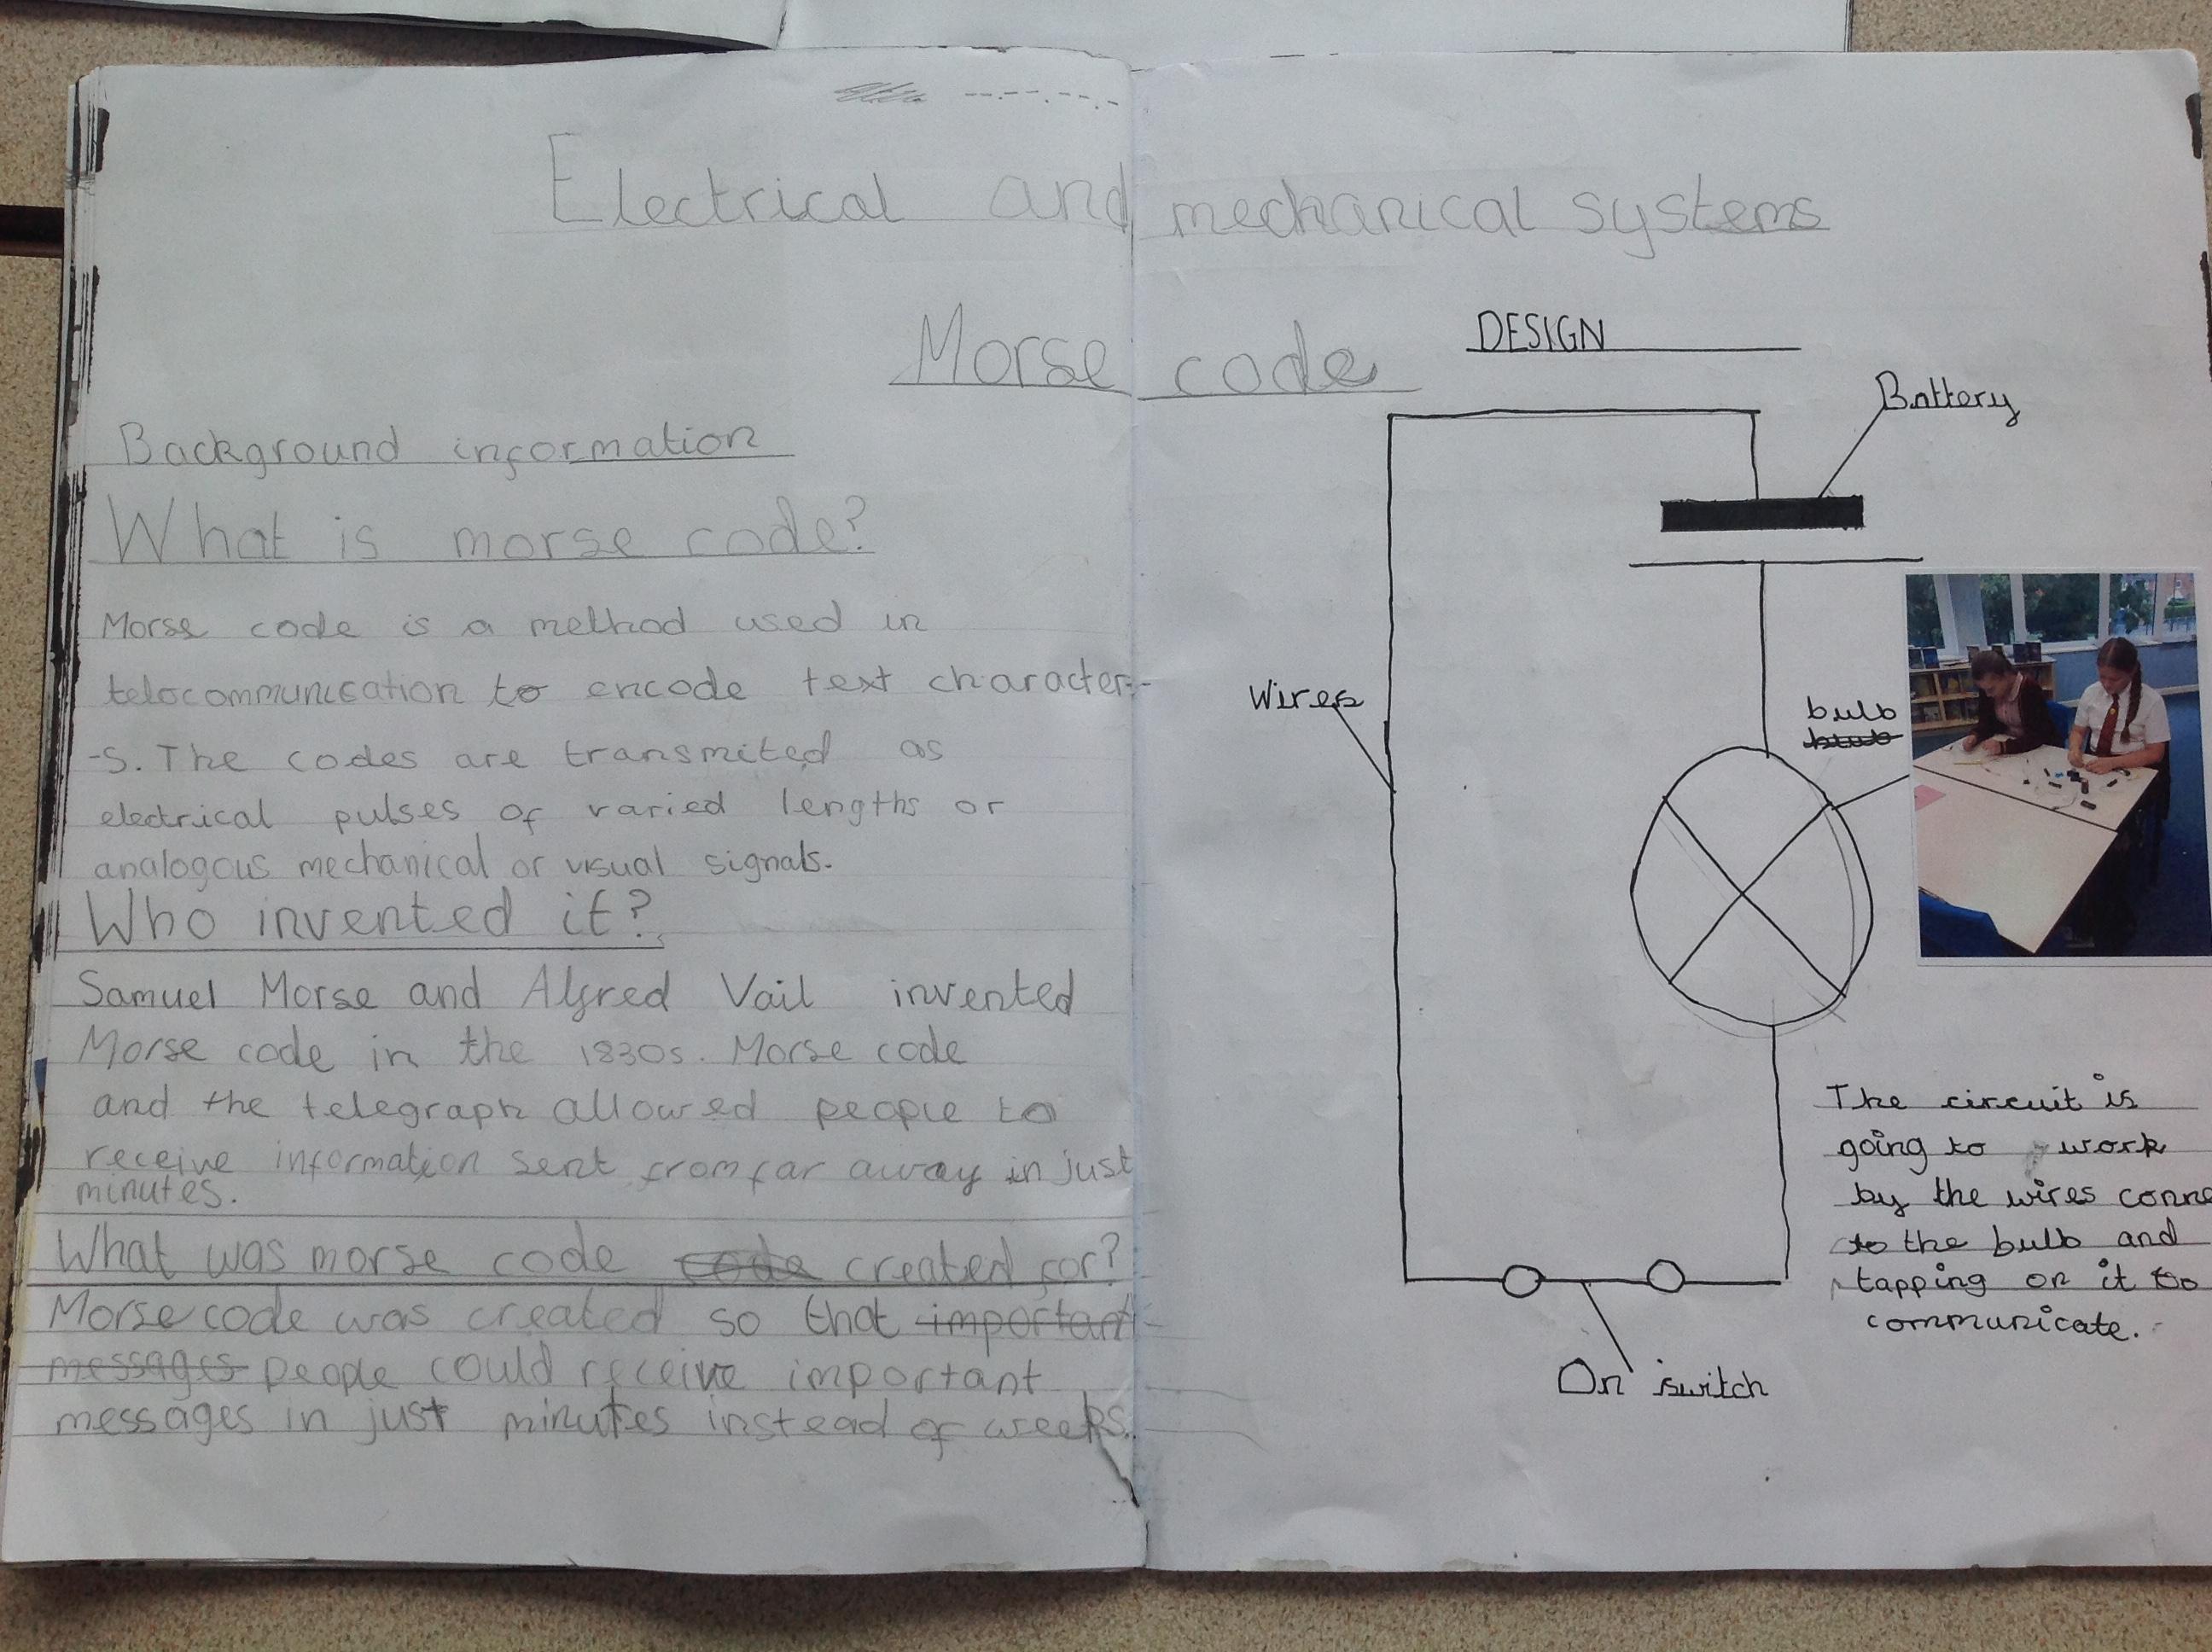 Electrical and mechanical systems
Morse code
Background information
What is morse code?
Morse code is a method used in
telocommunication to encode text character-
-s. The codes are transmited as
electrical pulses of varied lengths or
analogous mechanical or visual signals.
Who invented it?
Samuel Morse and Alfred Vail invented
Morse code in the 1830s. Morse code
and the telegraph allowed people to
receive information sent from far away in just
minutes.
What was morse code code created for?
Morse code was created so that important
messages people could receive important
messages in just minutes instead of weeks.
DESIGN
Battery
Wires
bulb
blub
On switch
The circuit is
going to work
by the wires conne
to the bulb and
tapping on it to
communicate.